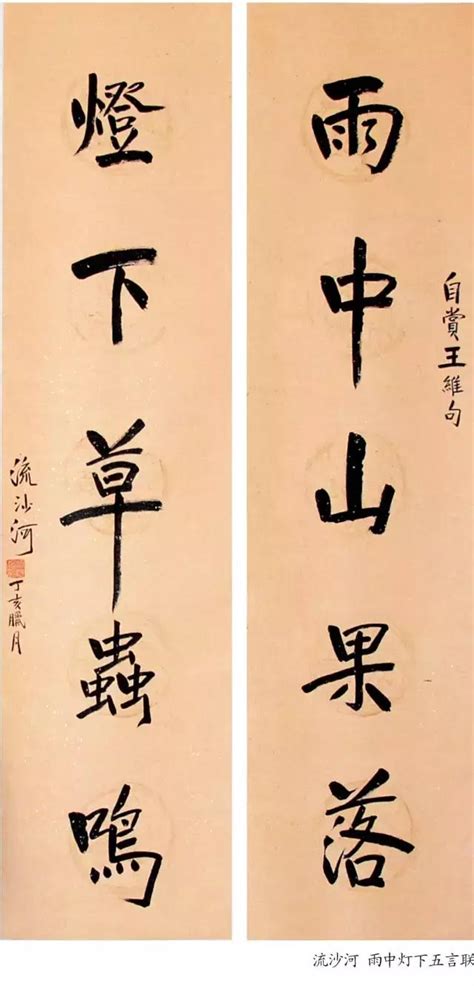 雨中山果落
自賞王維句
燈下草蟲鳴
流沙河
丁亥臘月
流沙河 雨中灯下五言联